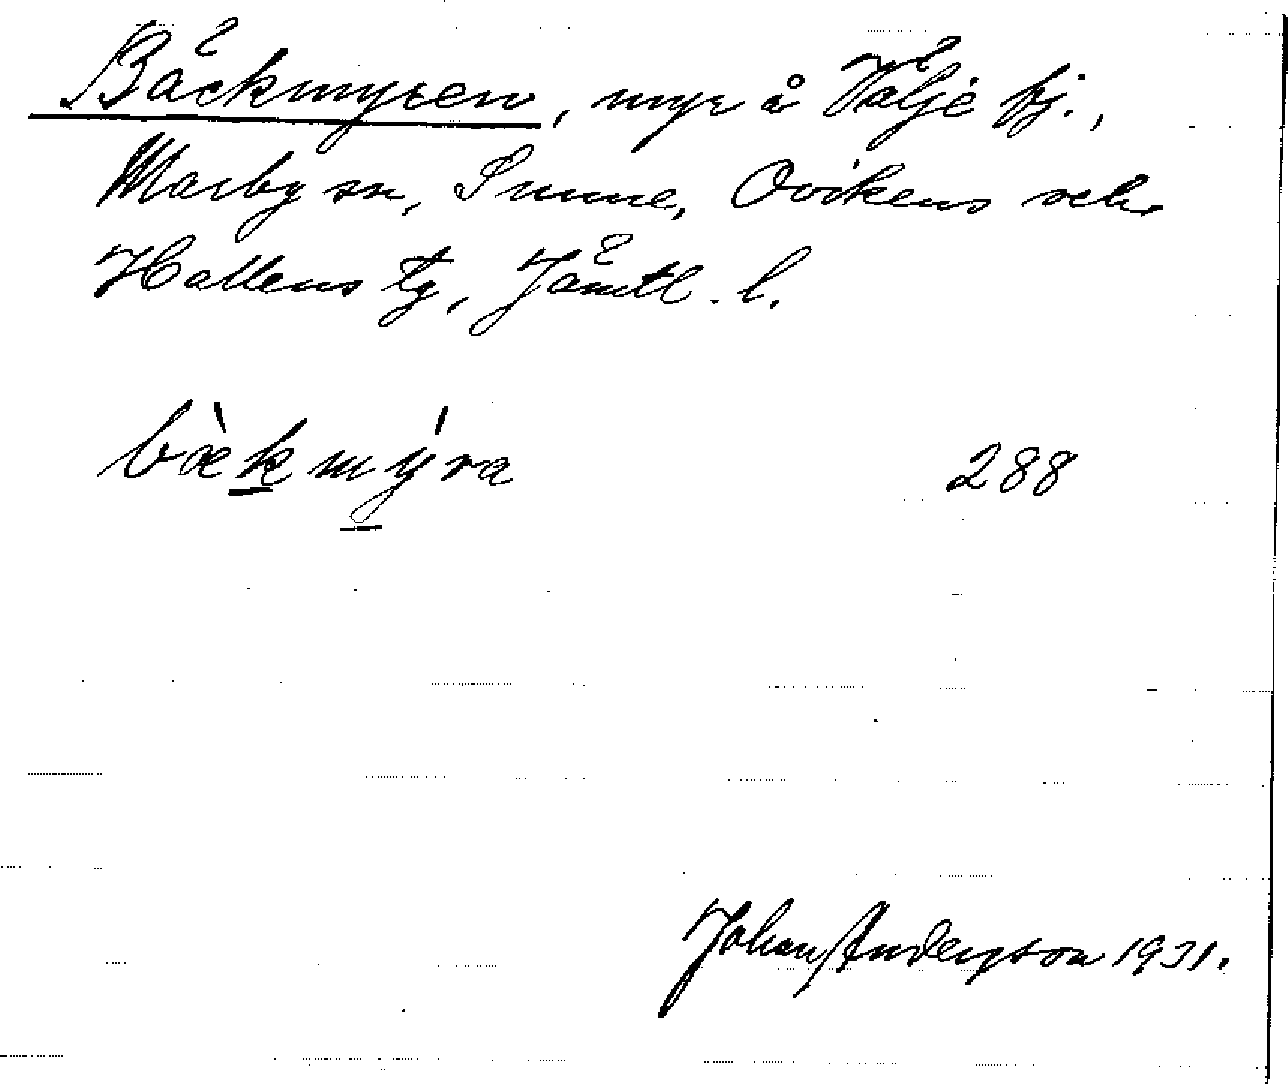 Bäckmyren, myr å Välje fj.,
Marby sn, Sunne, Ovikens och
Hallens tg, Jämtl. l.
bæ̀kmýra 288
Johan Anderson 1931.